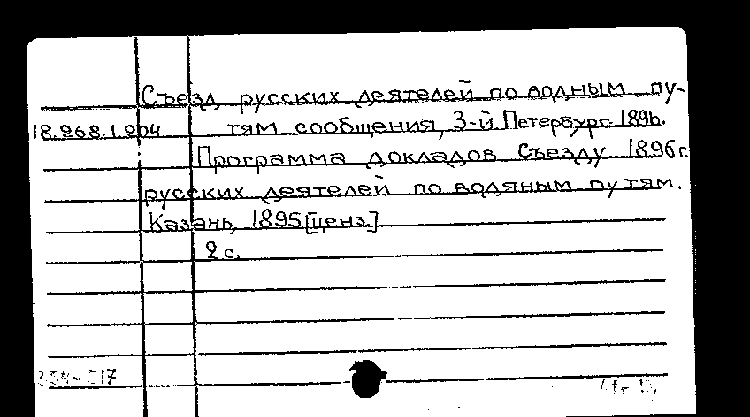 Съезд русских деятелей по водным пу-
18.268.1.204 тям сообщения, 3-й. Петербург. 1896.
Программа докладов Съезду 1896 г.
русских деятелей по водяным путям.
Казань, 1895 [ценз.]
2 с.